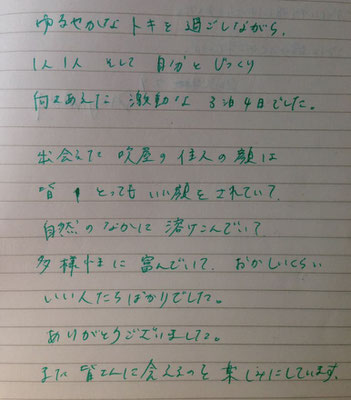 ゆるやかな トキを 過ごしながら、
1人1人 そして 自分と じっくり
向きあえた 激動な 3泊4日でした。
出会えた 吹屋の 住人の 顔は
皆 とっても いい顔をされていて、
自然の なかに 溶けこんでいて
多様性に 富んでいて、おかしいくらい
いい人たちばかりでした。
ありがとうございました。
また 皆さんに会えるのを 楽しみにしています。